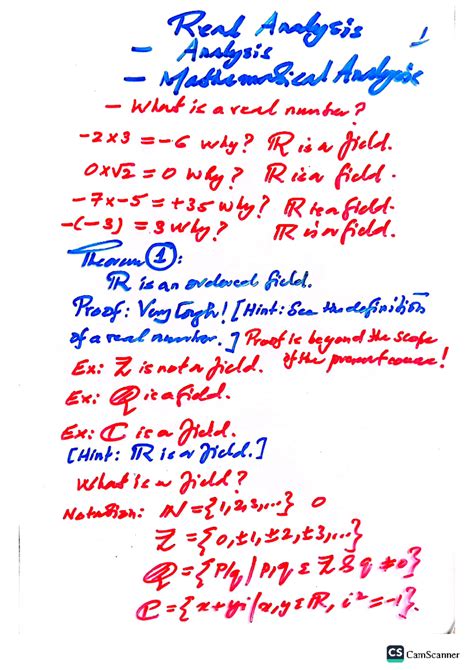 Real Analysis 1
- Analysis
- Mathematical Analysis
- What is a real number?
-2x3 = -6 why? ℝ is a field.
0x√2 = 0 why? ℝ is a field.
-7x-5 = +35 why? ℝ is a field.
-(-3) = 3 why? ℝ is a field.
Theorem ①:
ℝ is an ordered field.
Proof: Very Tough! [Hint: See the definition
of a real number.] Proof is beyond the scope
of the present course!
Ex: ℤ is not a field.
Ex: ℚ is a field.
Ex: ℂ is a field.
[Hint: ℝ is a field.]
What is a field?
Notation: ℕ = {1,2,3,...} 0
ℤ = {0,±1,±2,±3,...}
ℚ = {p/q | p,q ε ℤ & q ≠ 0}
ℂ = {x+yi | x,y ε ℝ, i² = -1}.
CS CamScanner